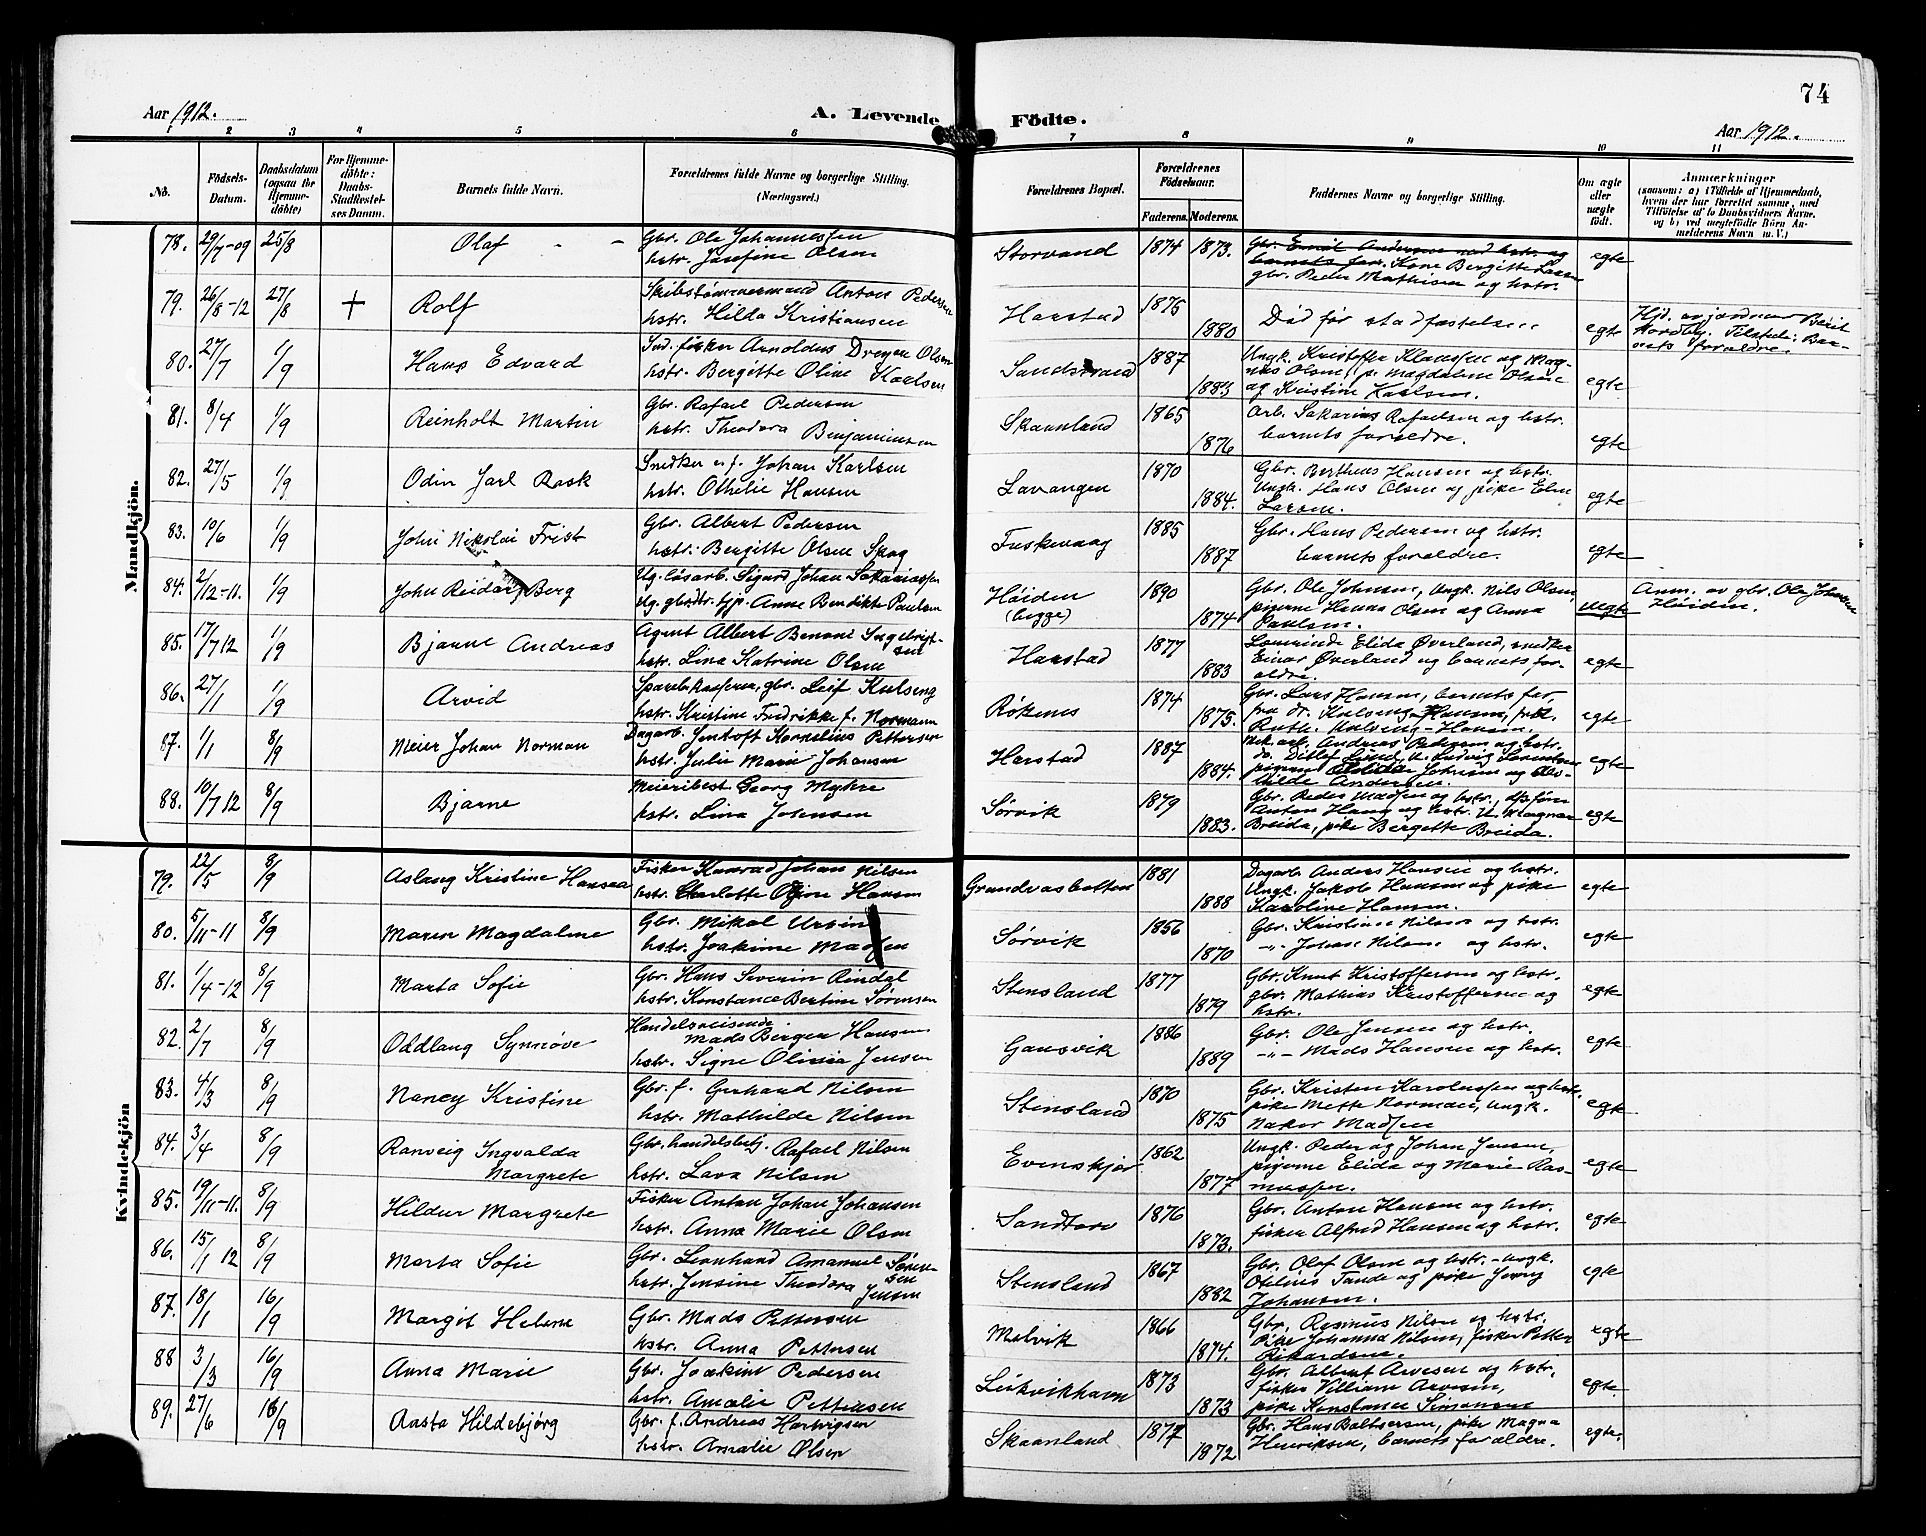 74
Aar 1912.
A. Levende Födte.
Aar 1912.
1 2 3 4 5 6 7 8 9 10 11
No.
Födsels-Datum.
Daabsdatum (ogsaa for Hjemmedöbte)
For Hjemmedöbte: Daabs-Stadfæstelses Datum.
Barnets fulde Navn.
Forældrenes fulde Navne og borgerlige Stilling. (Næringsvei.)
Forældrenes Bopæl.
Forældrenes Födselsaar.
Faderens. Moderens.
Faddernes Navne og borgerlige Stilling.
Om ægte eller uægte födt.
Anmærkninger
(saasom: a) i Tilfælde af Hjemmedaab, hvem der har forrettet samme, med Tilföielse af to Daabsvidners Navne, og b) ved uægtefödte Börn Anmelderens Navn m. V.)
Mandkjön.
78. 29/7-09 25/8 Olaf - - Gbr. Ole Johannessen
hstr. Josefine Olsen Storvand 1874 1873. Gbr. Emil Andersen med hstr. og
barnets far. Kone Bergitte Larsen
gbr. Peder Mathisen og hstr. egte
79. 26/8-12 27/8 + Rolf Skibstømmermand Anton Pedersen
hstr. Hilda Kristiansen Harstad 1875 1880 Død før stadfæstelsen egte Hjd. av jordmor Berit
Nordby. Tilstede: Bar-
nets forældre.
80. 27/7 1/9 Hans Edvard Ind. fisker Arnoldus Dreyer Olsen
hstr. Bergitte Oline Karlsen Sandstrand 1887 1883 Ungk. Kristoffer Klaussen og Mag-
nus Olsen, p. Magdalene Olsen
og Kristine Karlsen. egte
81. 8/4 1/9 Reinholt Martin Gbr. Rafael Pedersen
hstr. Theodora Benjaminsen Skaanland 1865 1876 Arb. Sakarias Rafaelsen og hstr.
barnets forældre. egte
82. 27/5 1/9 Odin Jarl Rask Snedker e.f. Johan Karlsen
hstr. Othelie Hansen Lavangen 1870 1884. Gbr. Bertheus Hansen og hstr.
Ungk. Hans Olsen og pike Elen
Larsen. egte
83. 10/6 1/9 John Nikolai Frist Gbr. Albert Pedersen
hstr. Bergitte Olsen Skog Fuskevaag 1885 1887 Gbr. Hans Pedersen og hstr.
barnets forældre. egte
84. 2/12-11. 1/9 John Reidar Berg Ug. løsarb. Sigurd Johan Sakariassen
Ug. gbrdtr. tjp. Anne Bendikte Paulsen Høiden
(begge) 1890 1874 Gbr. Ole Johnsen, Ungk. Nils Olsen,
pigerne Hanna Olsen og Anna
Paulsen. uegte Anm. av gbr. Ole Johnsen
Høiden.
85. 17/7 12 1/9 Bjarne Andreas Agent Albert Benoni Ingebrigt-
sen
hstr. Lina Katrine Olsen Harstad 1877 1883 Elida Øverland, snedker
Einar Øverland og barnets for-
ældre. egte
86. 27/1 1/9 Arvid Sparebkasserer, gbr. Leif Kulseng
hstr. Kristine Fredrikke f. Normann Røkenes 1874 1875. Gbr. Lars Hansen, barnets far
fru dr. Kulseng-Hansen, frk.
Ruth Kulseng-Hansen. egte
87. 1/1 8/9 Meier Johan Norman Dagarb. Jentoft Kornelius Pettersen
hstr. Julie Marie Johansen Harstad 1887 1884. Mek. arb. Andreas Pedersen og hstr.
do. Ditlef Lund, u. Ludvig Lorentsen
pigerne Johnsen og
Andersen. egte
88. 10/7 12 8/9 Bjarne Meieribest. Georg Myhre
hstr. Lina Jensen Sørvik 1879 1883. Gbr. Peder Madsen og hstr., dpsfører
Anton Hans og hstr. U. Magnar
Breida, pike Bergette Breida. egte
Kvindekjön
79. 22/5 8/9 Aslaug Kristine Hansea Fisker Konrad Johan Nilsen
hstr. Charlotte Oline Hansen Grundvasbotten 1881 1888 Dagarb. Anders Hansen og hstr.
Ungk. Jakob Hansen og pike
Karoline Hansen. egte
80. 5/11-11 8/9 Maren Magdalene Gbr. Mikal Ursin
hstr. Joakime Madsen Sørvik 1856 1870 Gbr. Kristian Nilsen og hstr.
-"- Johan Nilsen og hstr. egte
81. 1/4-12 8/9 Marta Sofie Gbr. Hans Severin Rindal
hstr. Konstance Bertine Sørensen Stensland 1877 1879 Gbr. Knut Kristoffersen og hstr.
gbr. Mathias Kristoffersen og
hstr. egte
82. 2/7 8/9 Oddlaug Synnøve Handelsreisende
Mads Berger Hansen
hstr. Signe Olivia Jensen Gausvik 1886 1889 Gbr. Ole Jensen og hstr.
-"- Mads Hansen og hstr. egte
83. 4/3 8/9 Nancy Kristine Gbr. f. Gerhard Nilsen
hstr. Mathilde Nilsen Stensland 1870 1875 Gbr. Kristen Karolussen og hstr.
pike Mette Norman, ungk.
Naker Madsen egte
84. 3/4 8/9 Ranveig Ingvalda
Margrete Gbr. handelsbetj. Rafael Nilsen
hstr. Lava Nilsen Evenskjær 1862 1877 Ungk. Peder og Johan Jensen,
pigerne Elida og Marie Ras-
mussen. egte
85. 19/11-11. 8/9 Hildur Margrete Fisker Anton Johan Johansen
hstr. Anna Marie Olsen Sandtorv 1876 1873. Gbr. Anton Hansen og hstr.
fisker Alfred Hansen og hstr. egte
86. 15/1 12 8/9 Marta Sofie Gbr. Leonhard Amanuel Søren-
sen
hstr. Jensine Theodora Jensen Stensland 1867 1882 Gbr. Olaf Olsen og hstr. - ungk.
Otelius Tande og pike Jenny
Johansen. egte
87. 18/1 16/9 Margit Helene Gbr. Mads Pettersen
hstr. Anna Pettersen Melvik 1866 1874. Gbr. Rasmus Nilsen og hstr.
Pike Johanna Nilsen, fisker Petter
Rikardsen. egte
88 3/3 16/9 Anna Marie Gbr. Joakim Pedersen
hstr. Amalie Pettersen Leikvikhavn 1873 1873 Gbr. Albert Arvesen og hstr.
fisker Villiam Arvesen,
pike Konstance Simonsen egte
89. 27/6 16/9 Aasta Hildebjørg Gbr. f. Andreas Hartvigsen
hstr. Amalie Olsen Skaanland 1877 1872 Gbr. Hans Baltsersen, pike Magna
Henriksen, barnets forældre. egte.